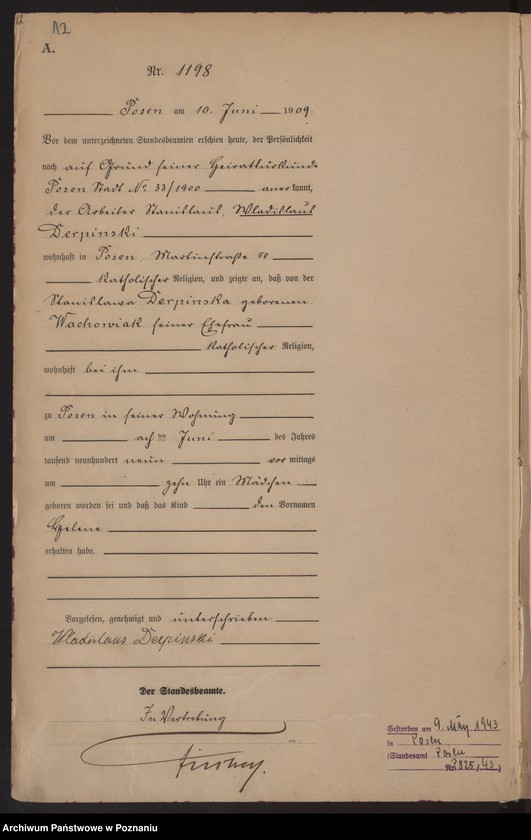 12
12
A.
Nr. 1198
Posen am 10. Juni 1909
Vor dem unterzeichneten Standesbeamten erschien heute, der Persönlichkeit
nach auf Grund seiner Heiratsurkunde
Posen Stadt No 33/1900 anerkannt,
der Arbeiter Stanislaus, Wladislaus
Derpinski
wohnhaft in Posen, Martinstraße 50
katholischer Religion, und zeigte an, daß von der
Stanislawa Derpinska geborenen
Wachowiak seiner Ehefrau
katholischer Religion,
wohnhaft bei ihm
zu Posen in seiner Wohnung
am achten Juni des Jahres
tausend neunhundert neun vor mittags
um zehn Uhr ein Mädchen
geboren worden sei und daß das Kind den Vornamen
Helene
erhalten habe.
Vorgelesen, genehmigt und unterschrieben
Wladislaus Derpinski
Der Standesbeamte.
In Vertretung
Gestorben am 9. März 1943
in Posen
(Standesamt Posen
Nr. 825/43)
Archiwum Państwowe w Poznaniu